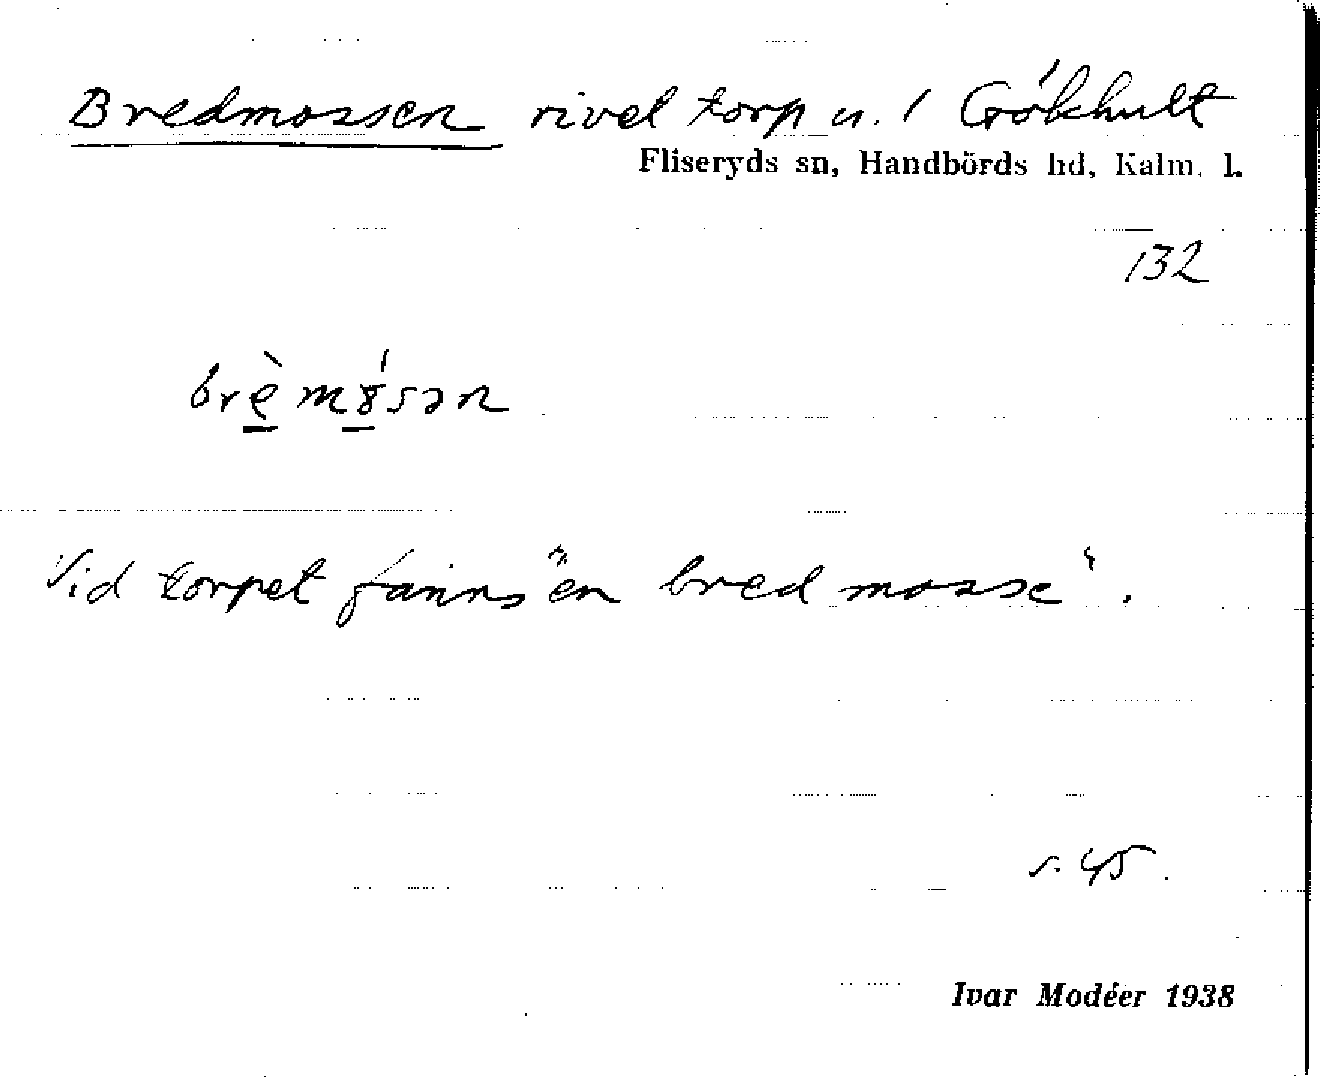 Bredmossen rivet torp u. / Gökhult
Fliseryds sn, Handbörds hd, Kalm. l.
132
brèmɤ́sən
Vid torpet fanns "en bred mosse".
s. 45.
Ivar Modéer 1938